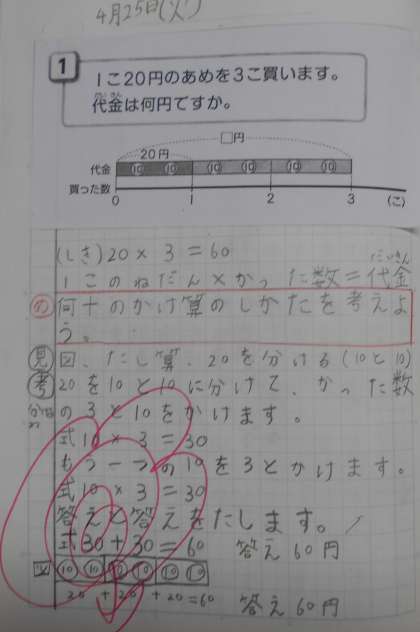 4月25日(火)
1
1こ20円のあめを3こ買います。
代金は何円ですか。
□円
20円
代金 ⑩ ⑩ ⑩ ⑩ ⑩ ⑩
買った数
0 1 2 3 (こ)
(しき)20×3=60
1このねだん×かった数=代金
め 何十のかけ算のしかたを考えよ
う。
見 図、たし算、20を分ける(10と10)
考 20を10と10に分けて、かった数
の3と10をかけます。
式10×3=30
もう一つの10を3とかけます。
式10×3=30
答えと答えをたします。
式30+30=60 答え60円
図 ⑩ ⑩ ⑩ ⑩ ⑩ ⑩
20+20+20=60 答え60円